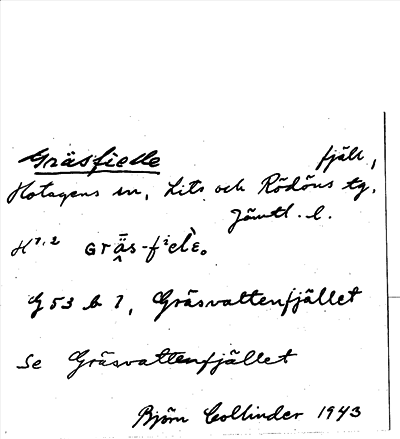 Gräsfjelle fjäll,
Hotagens sn, Lits och Rödöns tg,
Jämtl. l.
H 1,2 GRä̂s-fi̯elὲ.
G 53 b 1, Gräsvattenfjället
Se Gräsvattenfjället
Björn Collinder 1943